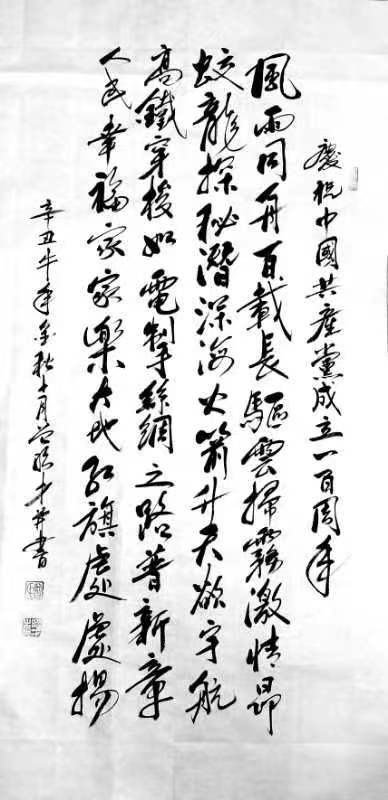 慶祝中國共產黨成立一百周年
風雨同舟百載長驅雲掃霧激情昂
蛟龍探秘潛深海火箭升天欲宇航
高鐵穿梭如電掣絲綢之路普新章
人民幸福家家樂大地紅旗處處揚
辛丑牛年金秋十月才并書